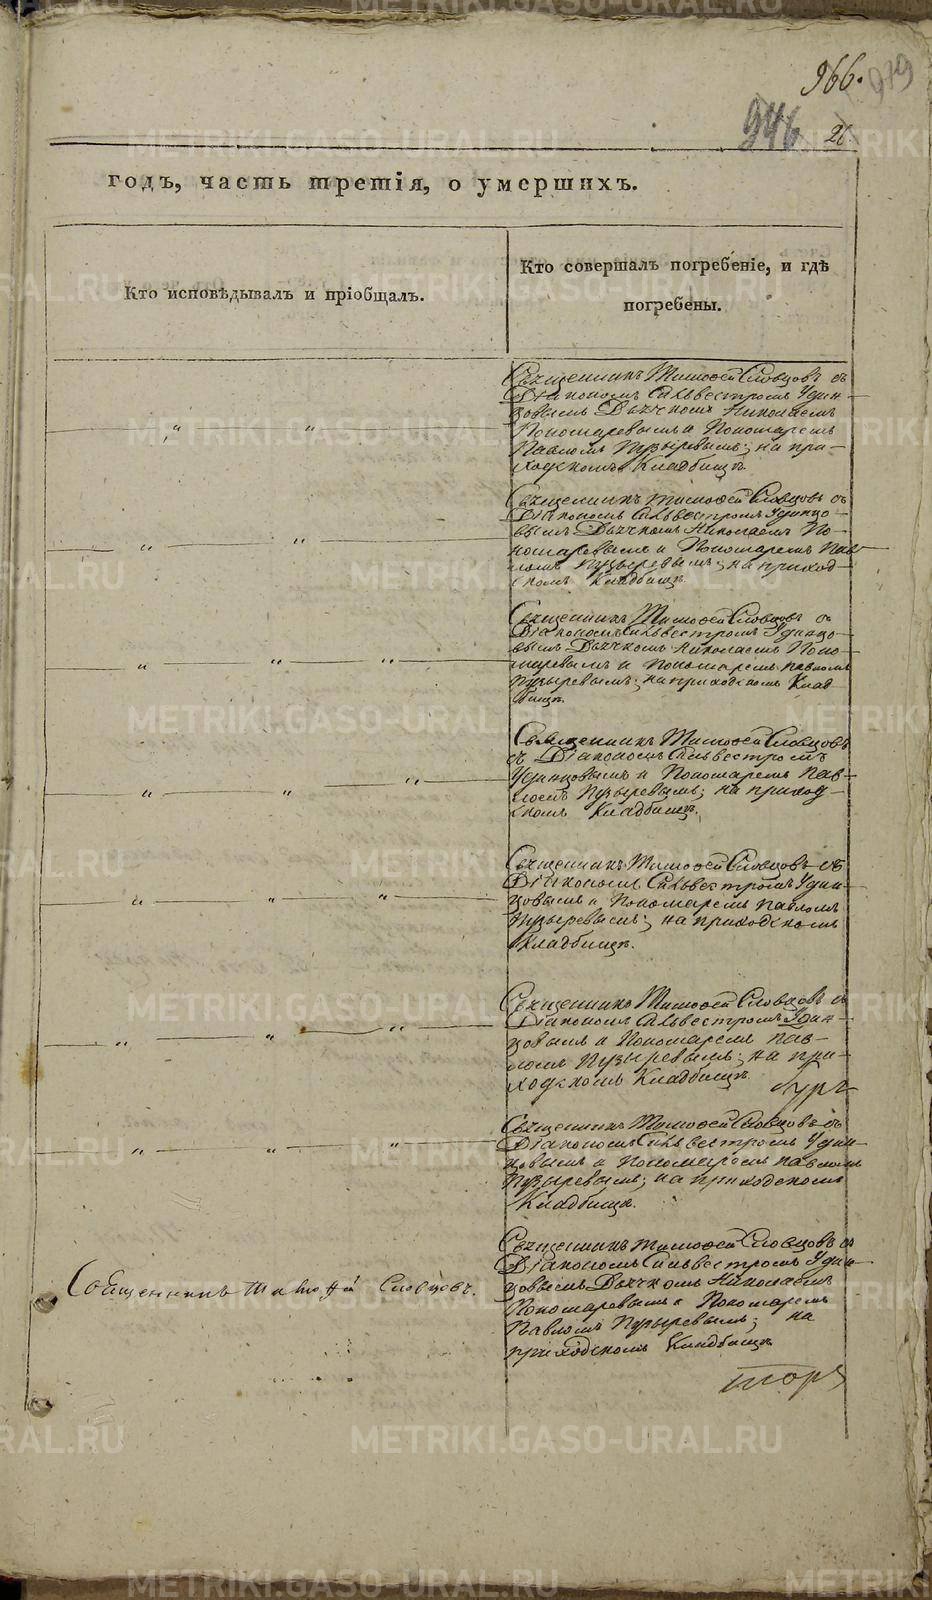 METRIKI.GASO-URAL.RU
966.
979
946
26.
годъ, часть третія, о умершихъ.
Кто исповѣдывалъ и пріобщалъ.
Кто совершалъ погребеніе, и гдѣ
погребены.
Священникъ Тимофей Словцовъ съ
Діакономъ Сильвестромъ Удин-
цовымъ Дьячкомъ Николаемъ
Пономаревымъ и Пономаремъ
Павломъ Пузыревымъ; на при-
ходскомъ Кладбищѣ.
Священникъ Тимофей Словцовъ съ
Діакономъ Сильвестромъ Удинцо-
вымъ Дьячкомъ Николаемъ По-
номаревымъ и Пономаремъ Пав-
ломъ Пузыревымъ; на приход-
скомъ Кладбищѣ.
Священникъ Тимофей Словцовъ съ
Діакономъ Сильвестромъ Удинцо-
вымъ Дьячкомъ Николаемъ Поно-
маревымъ и Пономаремъ Павломъ
Пузыревымъ; на приходскомъ Клад-
бищѣ.
Священникъ Тимофей Словцовъ
съ Діакономъ Сильвестромъ
Удинцовымъ и Пономаремъ Пав-
ломъ Пузыревымъ; на приход-
скомъ Кладбищѣ.
Священникъ Тимофей Словцовъ съ
Діакономъ Сильвестромъ Удин-
цовымъ и Пономаремъ Павломъ
Пузыревымъ; на приходскомъ
Кладбищѣ.
Священникъ Тимофей Словцовъ съ
Діакономъ Сильвестромъ Удин-
цовымъ и Пономаремъ Пав-
ломъ Пузыревымъ; на при-
ходскомъ Кладбищѣ.
Священникъ Тимофей Словцовъ съ
Діакономъ Сильвестромъ Удин-
цовымъ и Пономаремъ Павломъ
Пузыревымъ; на приходскомъ
Кладбищѣ.
Священникъ Тимофей Словцовъ.
Священникъ Тимофей Словцовъ съ
Діакономъ Сильвестромъ Удин-
цовымъ Дьячкомъ Николаемъ
Пономаревымъ и Пономаремъ
Павломъ Пузыревымъ; на
приходскомъ Кладбищѣ